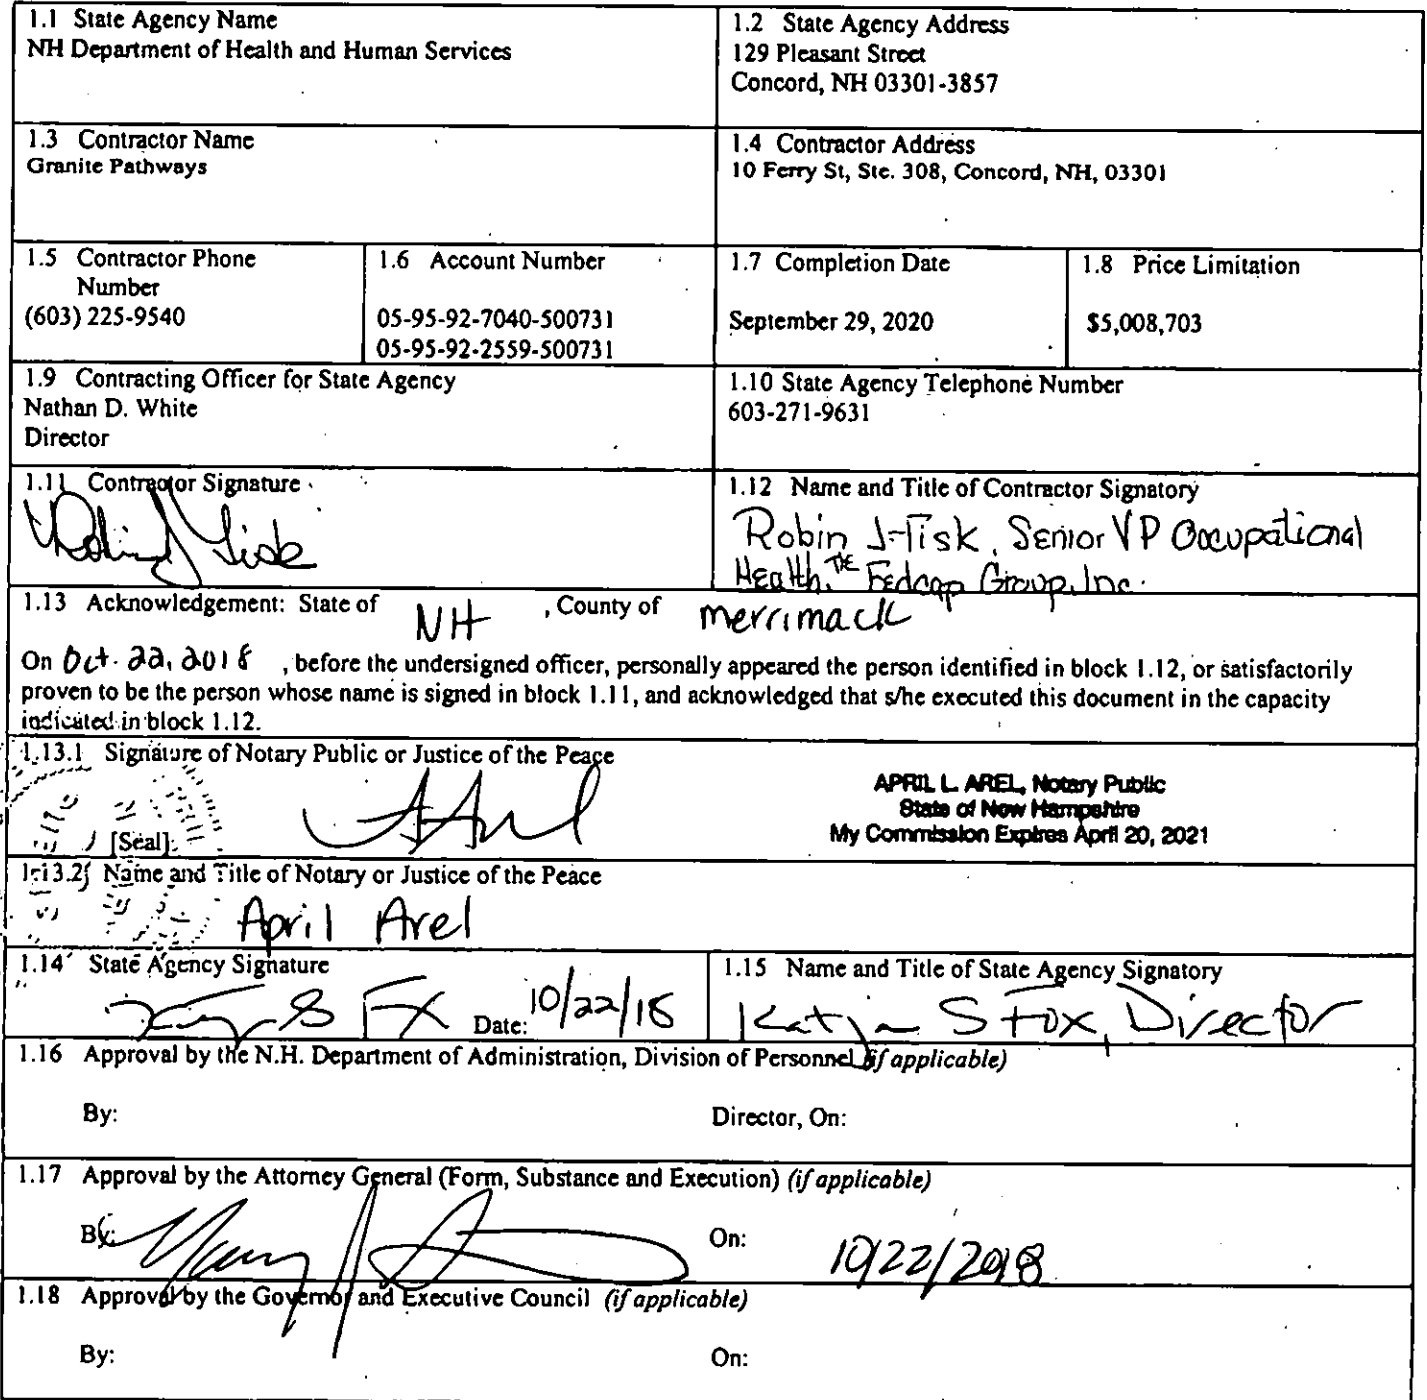 1.1 State Agency Name
NH Department of Health and Human Services
1.2 State Agency Address
129 Pleasant Street
Concord, NH 03301-3857
1.3 Contractor Name
Granite Pathways
1.4 Contractor Address
10 Ferry St, Ste. 308, Concord, NH, 03301
1.5 Contractor Phone
Number
(603) 225-9540
1.6 Account Number
05-95-92-7040-500731
05-95-92-2559-500731
1.7 Completion Date
September 29, 2020
1.8 Price Limitation
$5,008,703
1.9 Contracting Officer for State Agency
Nathan D. White
Director
1.10 State Agency Telephone Number
603-271-9631
1.11 Contractor Signature
1.12 Name and Title of Contractor Signatory
Robin J Fisk, Senior VP Occupational
Health, The Fedcap Group, Inc.
1.13 Acknowledgement: State of NH , County of Merrimack
On Oct. 22, 2018 , before the undersigned officer, personally appeared the person identified in block 1.12, or satisfactorily
proven to be the person whose name is signed in block 1.11, and acknowledged that s/he executed this document in the capacity
indicated in block 1.12.
1.13.1 Signature of Notary Public or Justice of the Peace
APRIL L. AREL, Notary Public
State of New Hampshire
My Commission Expires April 20, 2021
[Seal]
1.13.2 Name and Title of Notary or Justice of the Peace
April Arel
1.14 State Agency Signature
Date: 10/22/18
1.15 Name and Title of State Agency Signatory
Katja S Fox, Director
1.16 Approval by the N.H. Department of Administration, Division of Personnel (if applicable)
By: Director, On:
1.17 Approval by the Attorney General (Form, Substance and Execution) (if applicable)
By: On: 10/22/2018
1.18 Approval by the Governor and Executive Council (if applicable)
By: On: